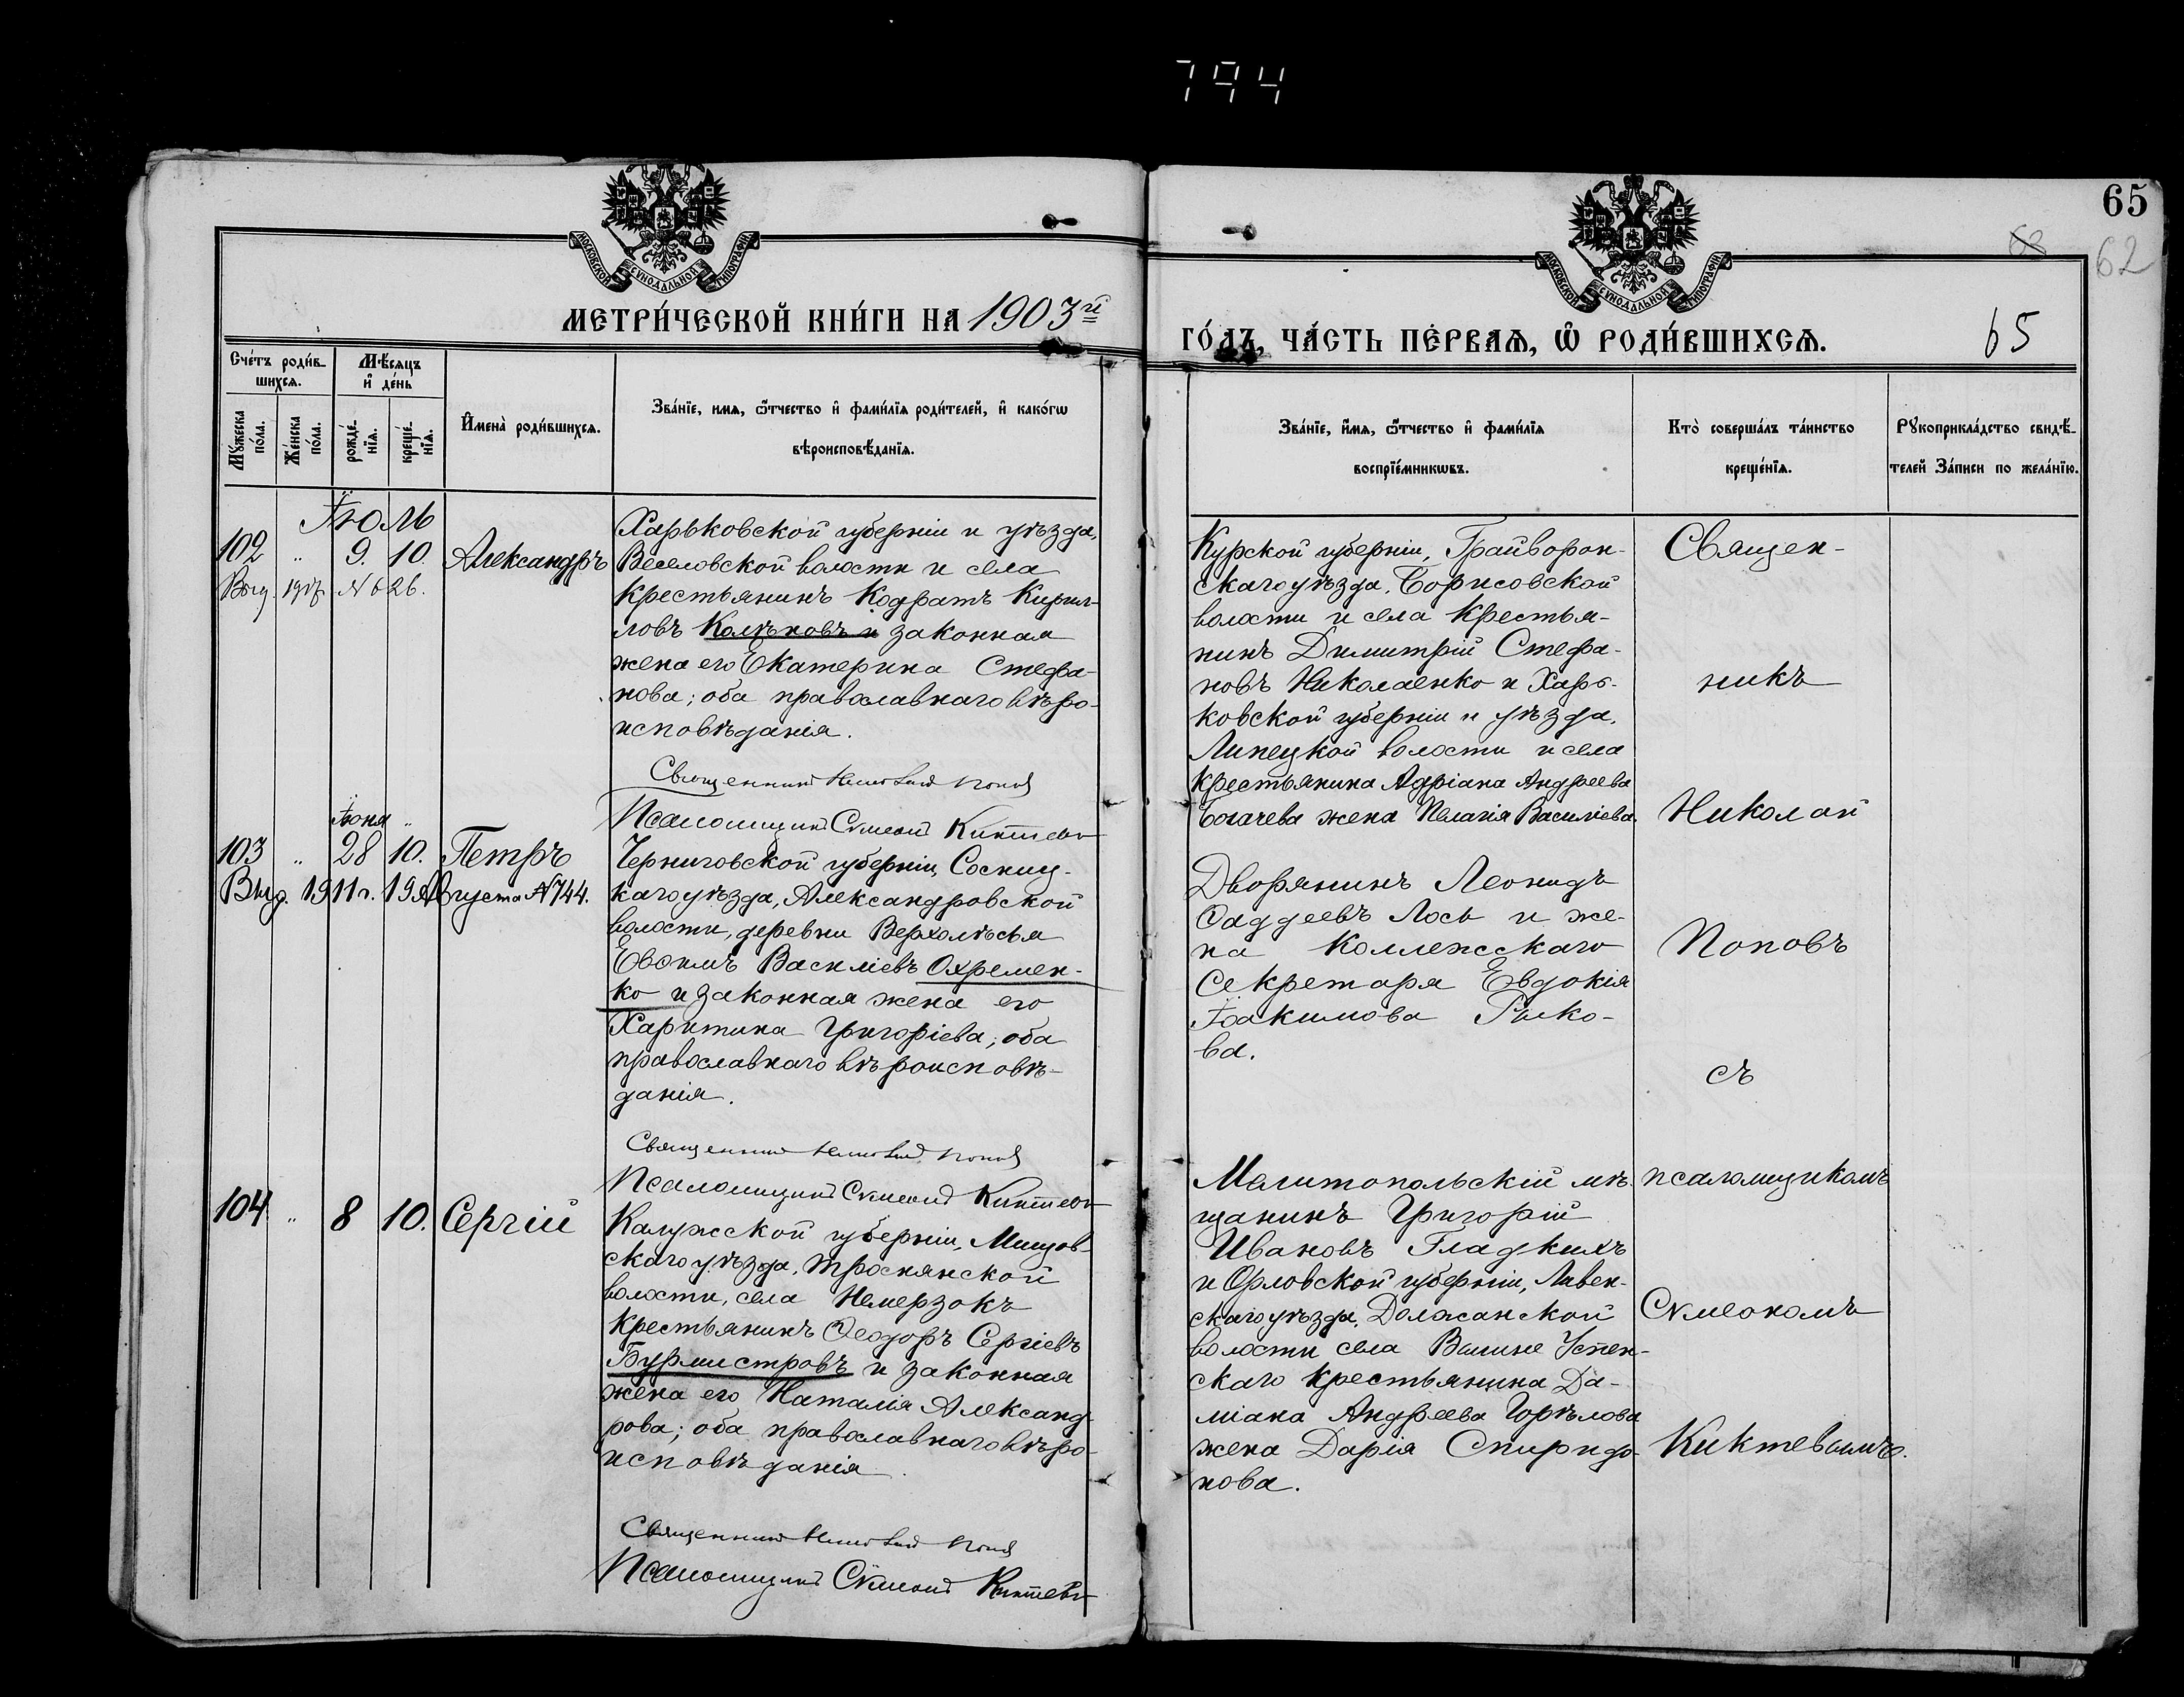 794
65
62
МОСКОВСКОЙ СѴНОДАЛЬНОЙ ТИПОГРАФІИ
МОСКОВСКОЙ СѴНОДАЛЬНОЙ ТИПОГРАФІИ
МЕТРИ́ЧЕСКОЙ КНИ́ГИ НА 1903й
ГО́ДЪ, ЧА́СТЬ ПЕ́РВАѦ, Ѡ҆ РОДИ́ВШИХСѦ.
65
Сче́тъ роди́в-
шихсѧ.
Мѣ́сѧцъ
и҆ де́нь
Мꙋ́жеска
по́ла.
Же́нска
по́ла.
рожде́-
нїѧ.
креще́-
нїѧ.
И҆мена̀ роди́вшихсѧ.
Зва́нїе, имѧ, ѻ҆́тчество и҆ фами́лїѧ роди́телей, и҆ како́гѡ
вѣроисповѣ́данїѧ.
Зва́нїе, и҆́мѧ, ѻ҆́тчество и҆ фами́лїѧ
воспрїе́мникѡвъ.
Кто̀ соверша́лъ та́инство
креще́нїѧ.
Рꙋкоприкла́дство свидѣ́-
телей За́писи по жела́нїю.
Іюль
102 " 9. 10. Александръ
Выд. 1917 №626.
Харьковской губерніи и уѣзда,
Веселовской волости и села
крестьянинъ Кодратъ Кирил-
ловъ Колѣновъ и законная
жена его Екатерина Стефа-
нова; оба православнаго вѣро-
исповѣданія.
Священникъ Николай Поповъ
Псаломщикъ Сѵмеонъ Киктевъ
Курской губерніи, Грайворон-
скаго уѣзда, Борисовской
волости и села крестья-
нинъ Димитрій Стефа-
новъ Николаенко и Харь-
ковской губерніи и уѣзда,
Липецкой волости и села
крестьянина Адріана Андреева
Богачева жена Пелагія Василіева.
Іюня "
103 " 28 10. Петръ
Выд. 1911 г. 19 Августа №744.
Черниговской губерніи, Сосниц-
каго уѣзда, Александровской
волости, деревни Верхолѣсья
Евѳимъ Василіевъ Охремен-
ко и законная жена его
Харитина Григоріева; оба
православнаго вѣроисповѣ-
данія.
Священникъ Николай Поповъ
Псаломщикъ Сѵмеонъ Киктевъ
Дворянинъ Леонидъ
Ѳаддеевъ Лось и же-
на Коллежскаго
Секретаря Евдокія
Іоакимова Рыко-
ва.
104 " 8 10. Сергій
Калужской губерніи, Мещов-
скаго уѣзда, Троснянской
волости, села Немерзокъ
крестьянинъ Ѳеодоръ Сергіевъ
Бурмистровъ и законная
жена его Наталія Александ-
рова; оба православнаго вѣро-
исповѣданія.
Священникъ Николай Поповъ
Псаломщикъ Сѵмеонъ Киктевъ
Мелитопольскій мѣ-
щанинъ Григорій
Ивановъ Гладкихъ
и Орловской губерніи, Ливен-
скаго уѣзда, Должанской
волости села Вышне Успен-
скаго крестьянина Да-
міана Андреева Горѣлова
жена Дарія Спиридо-
нова.
Священ-
никъ
Николай
Поповъ
съ
псаломщикомъ
Сѵмеономъ
Киктевымъ.